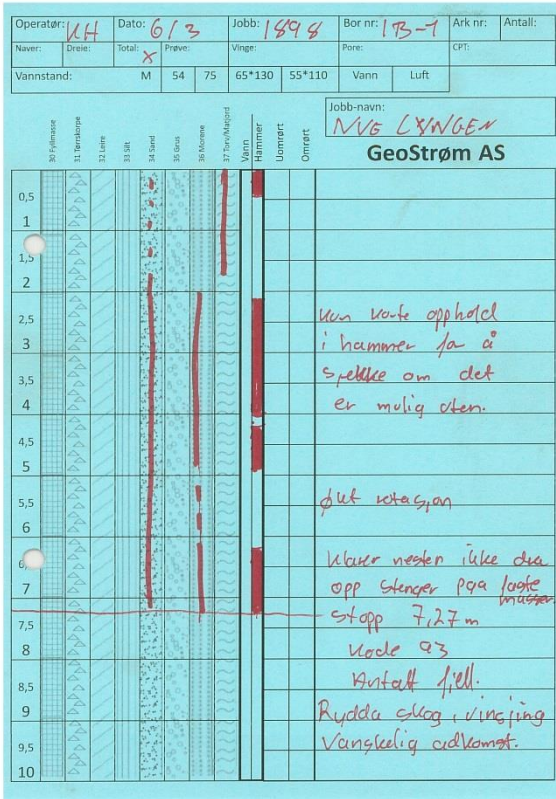 Operatør: KH Dato: 6/3 Jobb: 1898 Bor nr: 1B-1 Ark nr: Antall:
Naver: Dreie: Total: x Prøve: Vinge: Pore: CPT:
Vannstand: M 54 75 65*130 55*110 Vann Luft
Jobb-navn:
NVE LYNGEN
GeoStrøm AS
30 Fyllmasse 31 Tørrskorpe 32 Leire 33 Silt 34 Sand 35 Grus 36 Morene 37 Torv/Matjord Vann Hammer Uomrørt Omrørt
0,5
1
1,5
2
2,5 kun korte opphold
3 i hammer for å
3,5 sjekke om det
4 er mulig uten.
4,5
5
5,5 økt rotasjon
6
Klarer nesten ikke dra
7 opp stenger pga faste masser
stopp 7,27 m
7,5
8 Kode 93
8,5 Antatt fjell.
9 Rydda skog, vinsjing
9,5 Vanskelig adkomst.
10